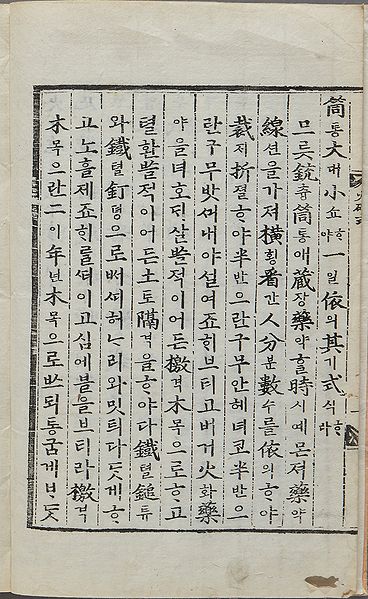 筒통大대小쇼ᄒᆞ야一일依의其기式식ᄒᆞ라
므릇銃츙筒통애藏장藥약ᄒᆞᆯ時시예몬져藥약
線션을가져橫횡看간人分분數수를依의ᄒᆞ야
裁ᄌᆡ折졀ᄒᆞ야半반으란구무안헤녀코半반으
란구무밧내야설여죠ᄒᆡ브티고버거火화藥
야을녀호ᄃᆡ살ᄡᅳᆯ적이어든檄격木목으로ᄒᆞ고
텰환ᄡᅳᆯ적이어든土토隔격을ᄒᆞ야다鐵텰鎚튜
와鐵텰釘뎡으로ᄡᅥ허ᄂᆞ리와밋티다ᄃᆞᆺ게ᄒᆞ
고노흘제죠ᄒᆡ를이고심에블을브티라檄격
木목으란二이年년木목으로ᄡᅳ되통굼게ᄇᆞᄃᆞᆺ